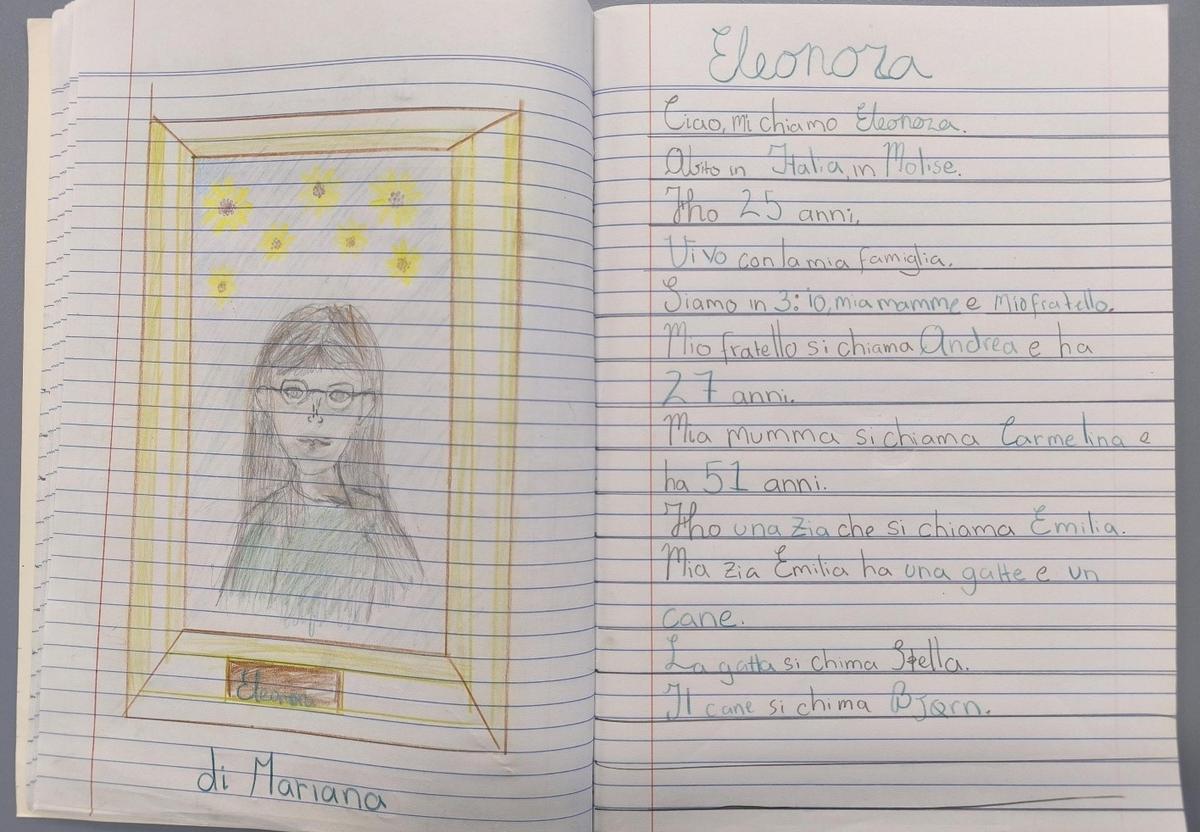 Eleonora
di Mariana
Eleonora
Ciao, mi chiamo Eleonora.
Abito in Italia, in Molise.
Ho 25 anni,
Vivo con la mia famiglia.
Siamo in 3: io, mia mamme e mio fratello.
Mio fratello si chiama Andrea e ha
27 anni.
Mia mumma si chiama Carmelina e
ha 51 anni.
Ho una zia che si chiama Emilia.
Mia zia Emilia ha una gatte e un
cane.
La gatta si chima Stella.
Il cane si chima Bjørn.